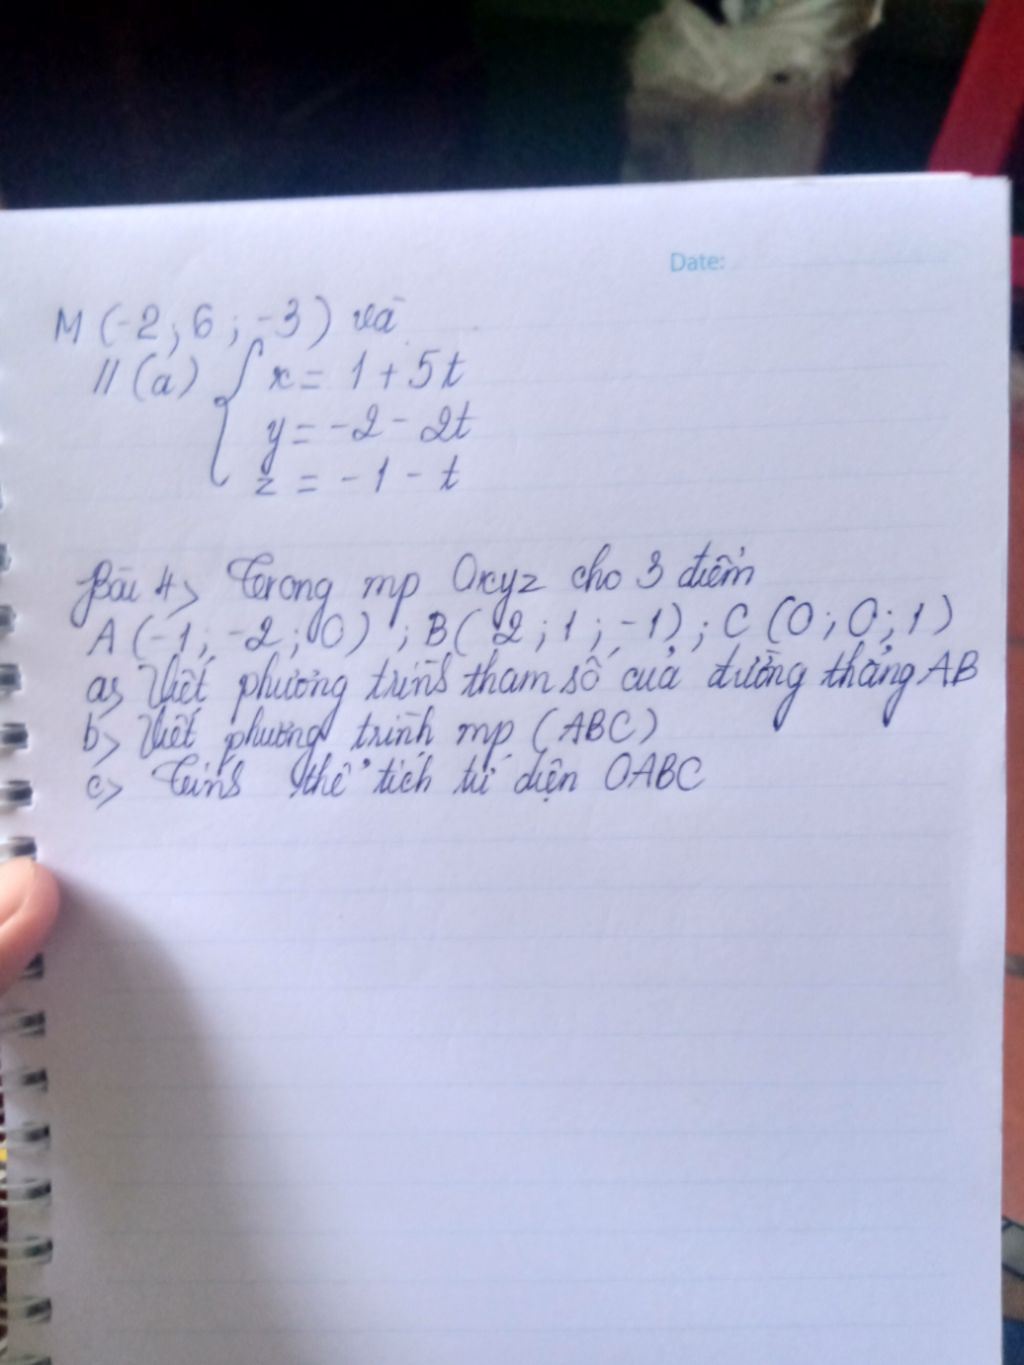 Date:
M (-2; 6; -3) và
// (a) { x = 1 + 5t
y = -2 - 2t
z = -1 - t
Bài 4> Trong mp Oxyz cho 3 điểm
A (-1; -2; 0); B( 2; 1; -1); C (0; 0; 1)
a> Viết phương trình tham số của đường thẳng AB
b> Viết phương trình mp (ABC)
c> Tính thể tích tứ diện OABC